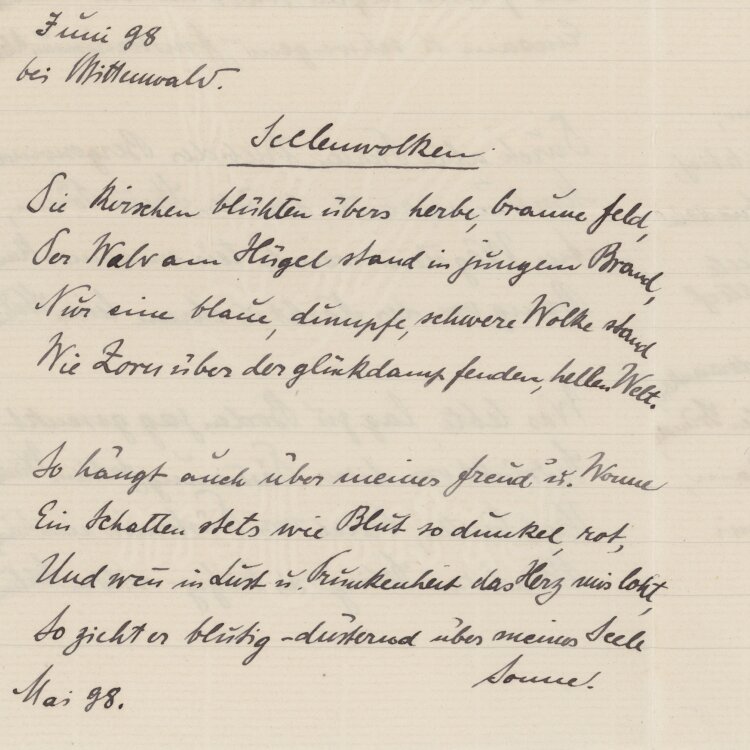 Juni 98
bei Mittenwald.
Seelenwolken
Die Kirschen blühten übers herbe, braune Feld,
Der Wald am Hügel stand in jungem Brand,
Nur eine blaue, dumpfe, schwere Wolke stand
Wie Zorn über der glückdampfenden, hellen Welt.
So hängt auch über meiner Freud' u. Wonne
Ein Schatten stets wie Blut so dunkel, rot,
Und wen̄ in Lust u. Trunkenheit das Herz mir loht,
So zieht er blutig-düsternd über meiner Seele
Sonne.
Mai 98.